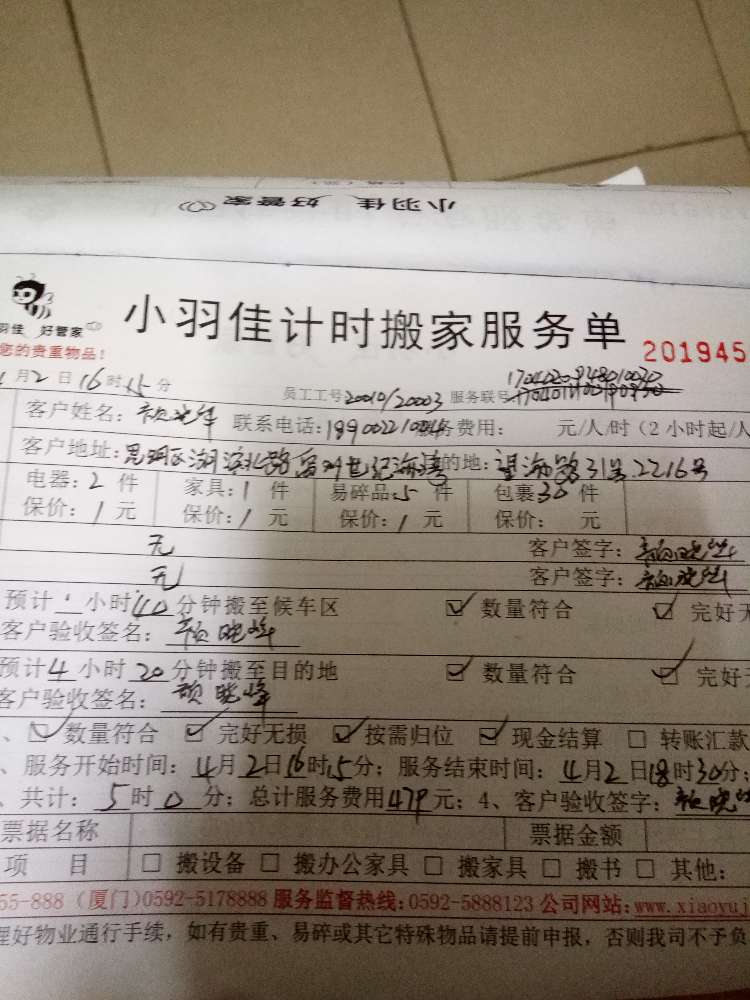 小羽佳 好管家
小羽佳计时搬家服务单
羽佳 好管家
您的贵重物品! 201945
月2日16时15分 员工工号20010/20003 服务联号
客户姓名: 联系电话: 服务费用: 元/人/时(2小时起/人
客户地址: 的地:望海路31号.2216号
电器:2件 家具:1件 易碎品:5件 包裹30件
保价:1元 保价:1元 保价:1元 保价: 元
无 客户签字:
无 客户签字:
预计 小时40分钟搬至候车区 数量符合 完好无
客户验收签名:颜晓峰
预计4小时20分钟搬至目的地 数量符合 完好无
客户验收签名:颜晓峰
、 数量符合 完好无损 按需归位 现金结算 转账汇款
、服务开始时间:4月2日16时15分;服务结束时间:4月2日18时30分;
、共计:5时0分;总计服务费用479元;4、客户验收签字:颜晓
票据名称 票据金额
项 目 □搬设备 □搬办公家具 □搬家具 □搬书 □其他:
55-888 (厦门)0592-5178888 服务监督热线:0592-5888123 公司网站:www.xiaoyuj
理好物业通行手续,如有贵重、易碎或其它特殊物品请提前申报,否则我司不予负